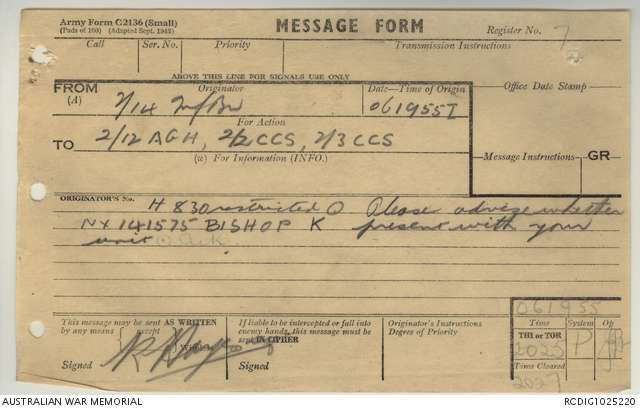 Army Form C2136 (Small)
(Pads of 100) (Adapted Sept. 1942)
MESSAGE FORM
Register No. 7
Call Ser. No. Priority Transmission Instructions
ABOVE THIS LINE FOR SIGNALS USE ONLY
FROM Originator Date-Time of Origin Office Date Stamp
(A) 2/14 Inf Bn 061955I
For Action
TO 2/12 AGH, 2/2 CCS, 2/3 CCS
(W) For Information (INFO.) Message Instructions GR
ORIGINATOR'S No.
H 830 restricted O Please advise whether
NX 141575 BISHOP K present with your
unit
This message may be sent AS WRITTEN
by any means except
Wireless
Signed
If liable to be intercepted or fall into
enemy hands, this message must be
sent IN CIPHER
Signed
Originator's Instructions
Degree of Priority
061955
Time System Op
THI or TOR
2025 P
Time Cleared
2027
AUSTRALIAN WAR MEMORIAL RCDIG1025220